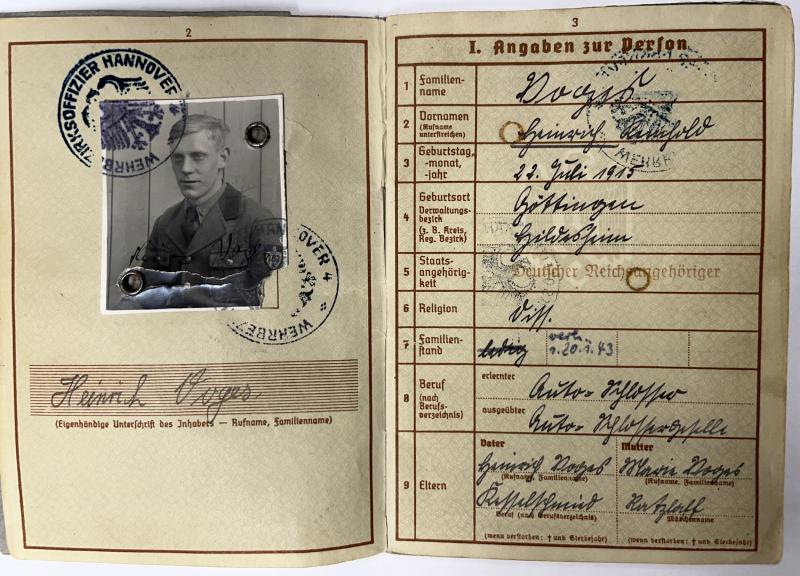 2
WEHRBEZIRKSOFFIZIER HANNOVER
HANNOVER 4
WEHRBEZ
Heinrich Voges
(Eigenhändige Unterschrift des Inhabers — Rufname, Familienname)
3
I. Angaben zur Person
1 Familienname Voges
2 Vornamen (Rufname unterstreichen) Heinrich Reinhold
3 Geburtstag, -monat, -jahr 22. Juli 1915
4 Geburtsort Göttingen
Verwaltungsbezirk (z. B. Kreis, Reg. Bezirk) Hildesheim
5 Staatsangehörigkeit Deutscher Reichsangehöriger
6 Religion Diss.
7 Familienstand ledig verh. 20.1.43
8 Beruf (nach Berufsverzeichnis) erlernter Auto-Schlosser
ausgeübter Auto-Schlossergeselle
9 Eltern
Vater Mutter
Heinrich Voges Marie Voges
(Rufname, Familienname) (Rufname, Familienname)
Kesselschmied Ratzlaff
Beruf (nach Berufsverzeichnis) Mädchenname
(wenn verstorben: † und Sterbejahr) (wenn verstorben: † und Sterbejahr)